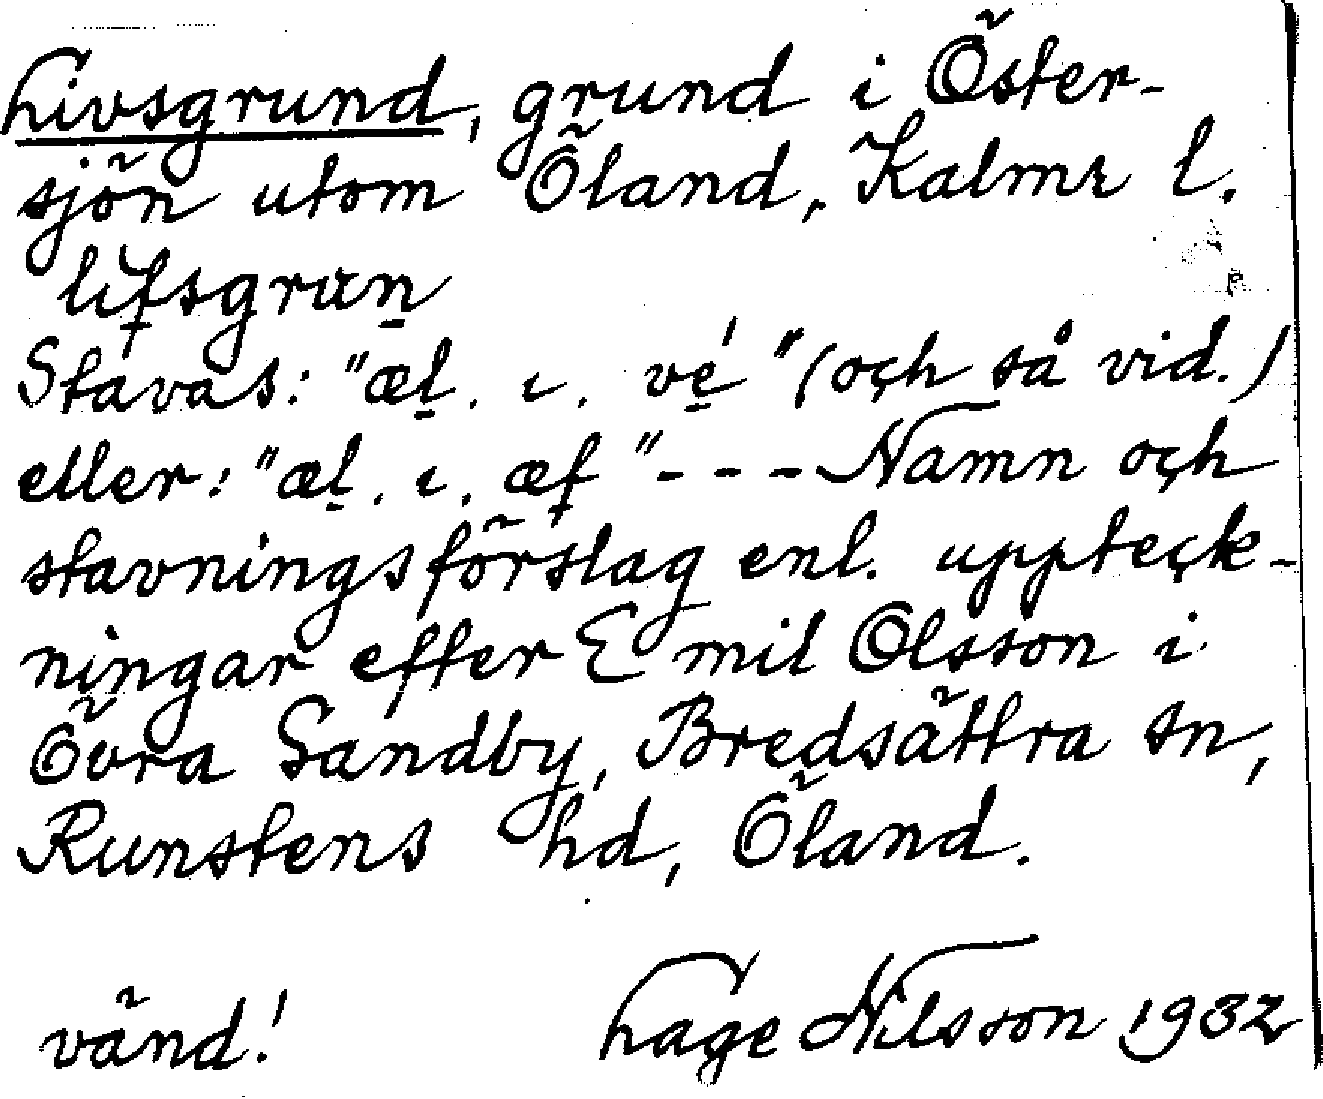 Livsgrund, grund i Öster-
sjön utom Öland, Kalmr l.
lıf̱sgrun̠
Stavas: "æl̠. ı. ve̠´" (och så vid.)
eller: "æl̠. ı. æf̱" - - - Namn och
stavningsförslag enl. uppteck-
ningar efter Emil Olsson i
Övra Sandby, Bredsättra sn,
Runstens hd, Öland.
vänd! Lage Nilsson 1932